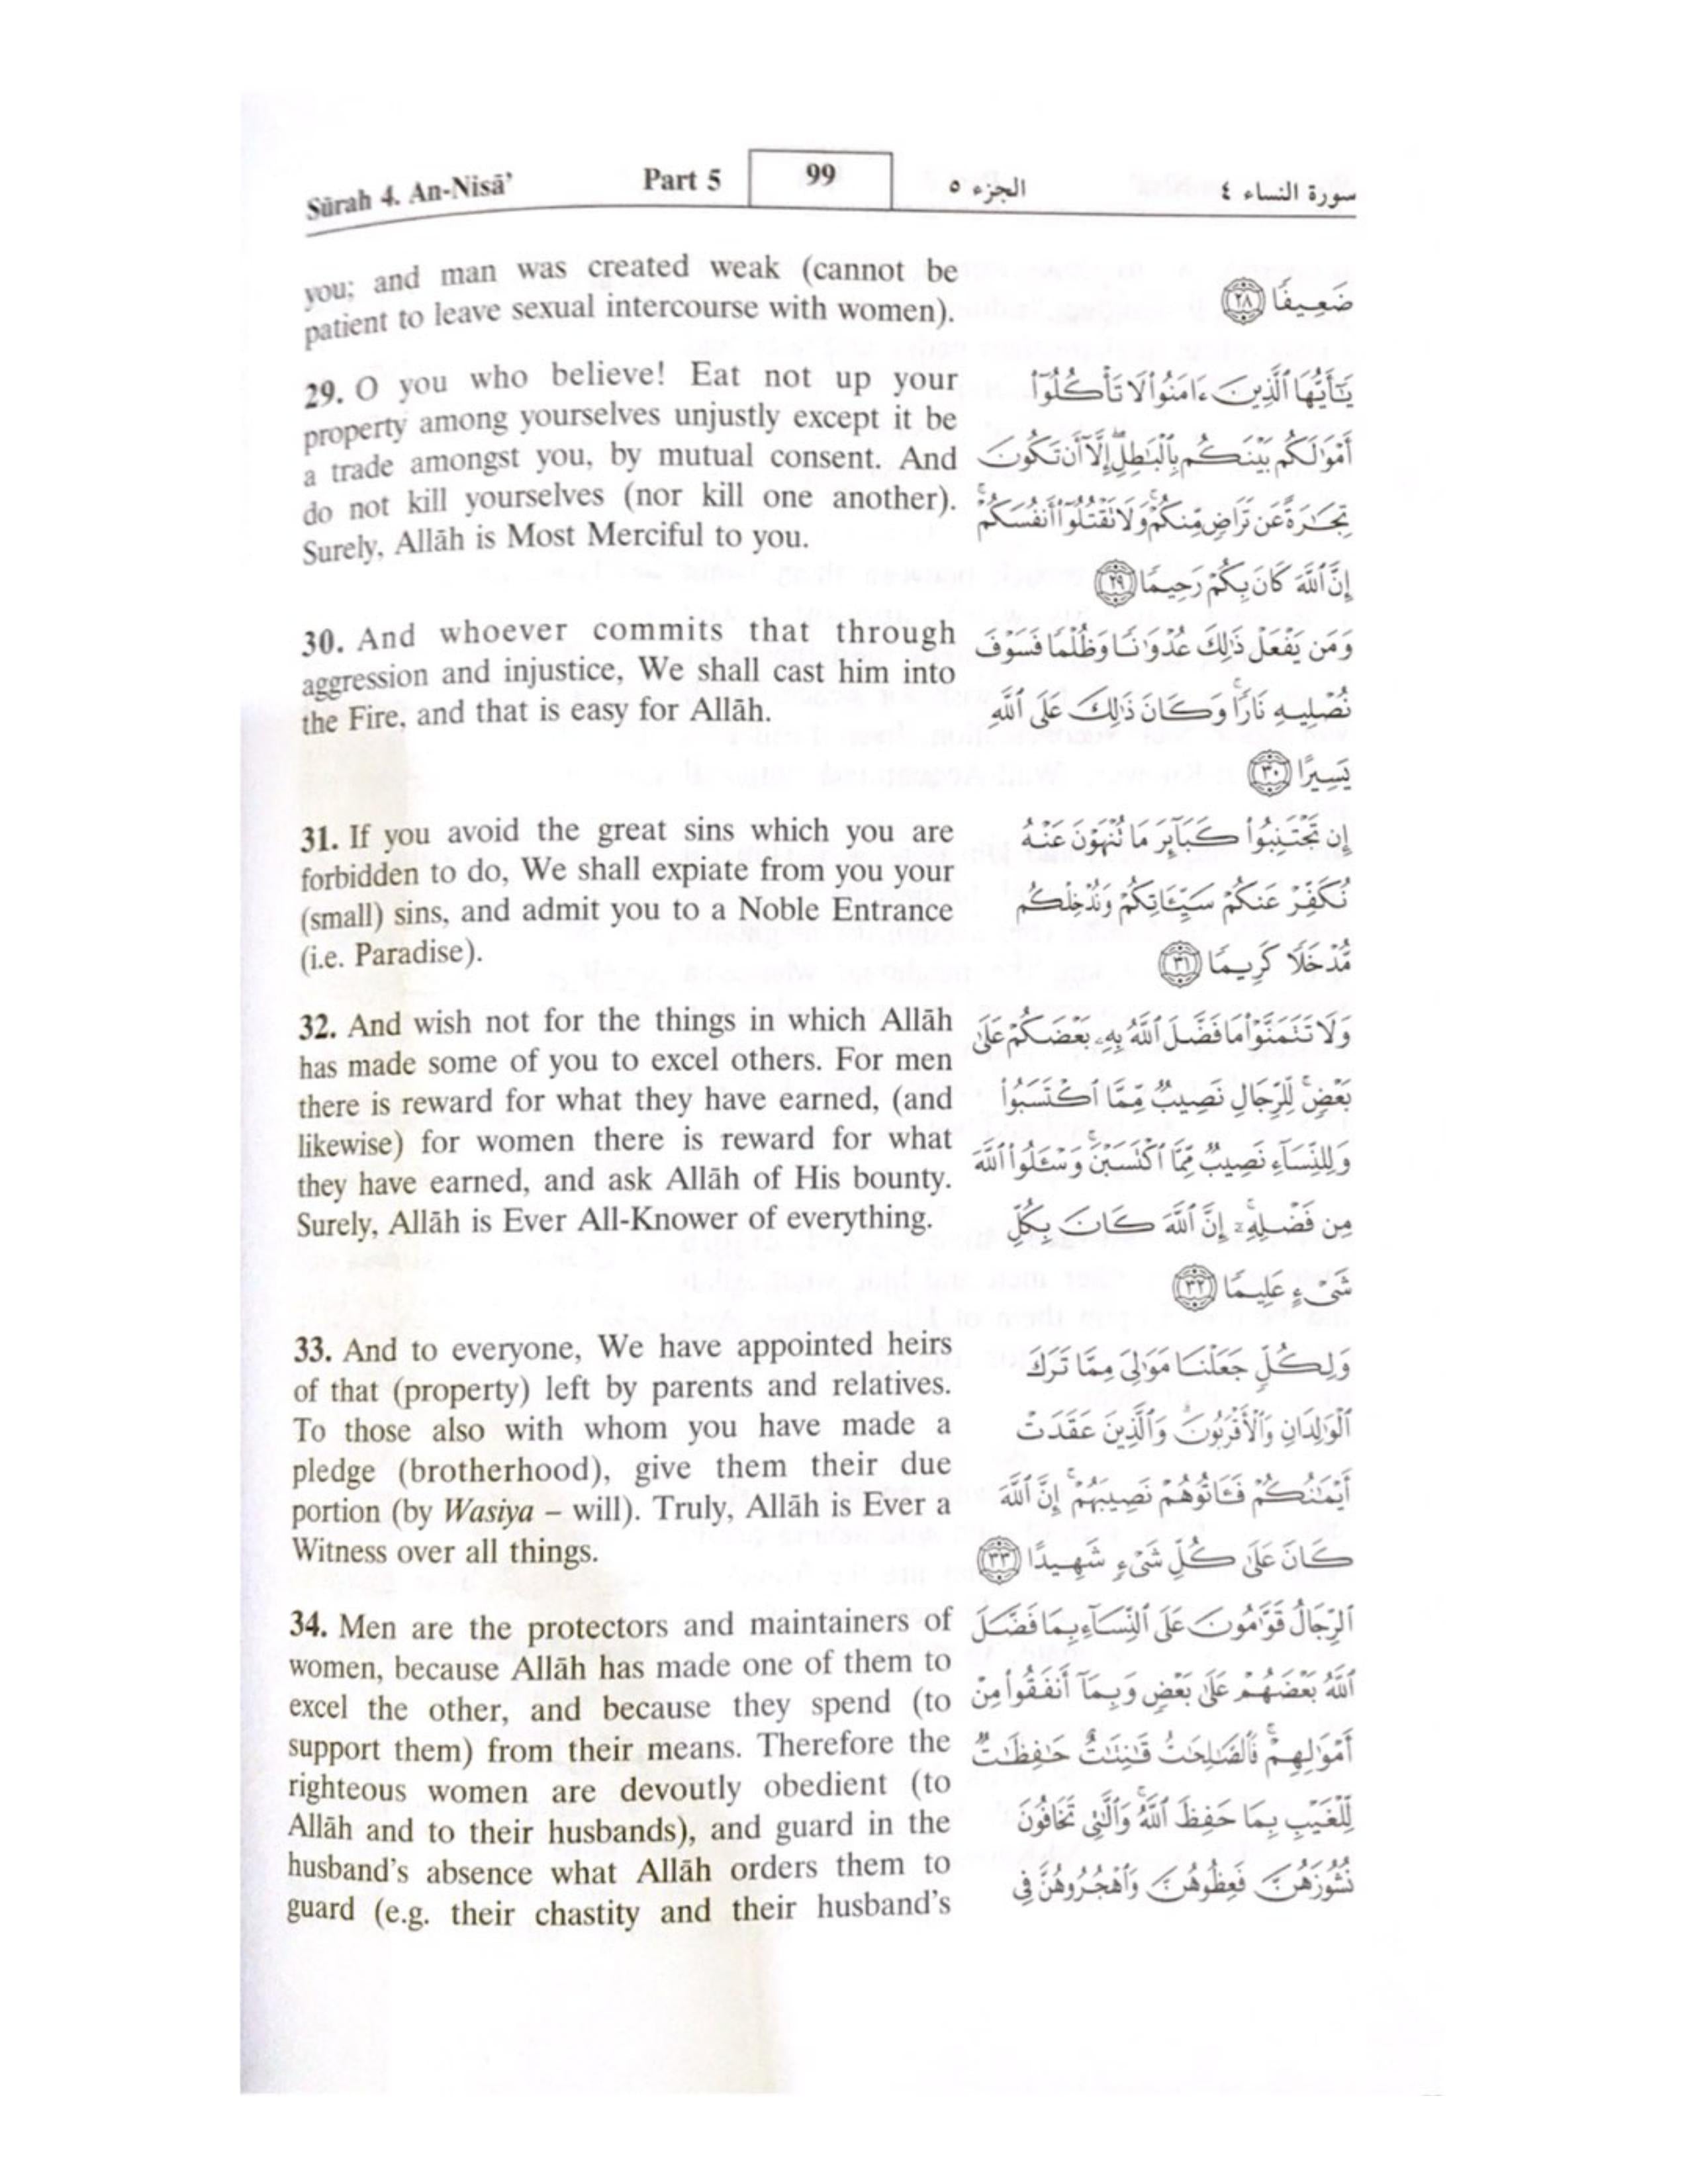 Sūrah 4. An-Nisā’ Part 5 99 الجزء ٥ سورة النساء ٤
you; and man was created weak (cannot be
patient to leave sexual intercourse with women).
29. O you who believe! Eat not up your
property among yourselves unjustly except it be
a trade amongst you, by mutual consent. And
do not kill yourselves (nor kill one another).
Surely, Allāh is Most Merciful to you.
30. And whoever commits that through
aggression and injustice, We shall cast him into
the Fire, and that is easy for Allāh.
31. If you avoid the great sins which you are
forbidden to do, We shall expiate from you your
(small) sins, and admit you to a Noble Entrance
(i.e. Paradise).
32. And wish not for the things in which Allāh
has made some of you to excel others. For men
there is reward for what they have earned, (and
likewise) for women there is reward for what
they have earned, and ask Allāh of His bounty.
Surely, Allāh is Ever All-Knower of everything.
33. And to everyone, We have appointed heirs
of that (property) left by parents and relatives.
To those also with whom you have made a
pledge (brotherhood), give them their due
portion (by Wasiya – will). Truly, Allāh is Ever a
Witness over all things.
34. Men are the protectors and maintainers of
women, because Allāh has made one of them to
excel the other, and because they spend (to
support them) from their means. Therefore the
righteous women are devoutly obedient (to
Allāh and to their husbands), and guard in the
husband’s absence what Allāh orders them to
guard (e.g. their chastity and their husband’s
ضَعِيفًا ٢٨
يَٰٓأَيُّهَا ٱلَّذِينَ ءَامَنُوا۟ لَا تَأْكُلُوٓا۟
أَمْوَٰلَكُم بَيْنَكُم بِٱلْبَٰطِلِ إِلَّآ أَن تَكُونَ
تِجَٰرَةً عَن تَرَاضٍ مِّنكُمْ ۚ وَلَا تَقْتُلُوٓا۟ أَنفُسَكُمْ ۚ
إِنَّ ٱللَّهَ كَانَ بِكُمْ رَحِيمًا ٢٩
وَمَن يَفْعَلْ ذَٰلِكَ عُدْوَٰنًا وَظُلْمًا فَسَوْفَ
نُصْلِيهِ نَارًا ۚ وَكَانَ ذَٰلِكَ عَلَى ٱللَّهِ
يَسِيرًا ٣٠
إِن تَجْتَنِبُوا۟ كَبَآئِرَ مَا تُنْهَوْنَ عَنْهُ
نُكَفِّرْ عَنكُمْ سَيِّـَٔاتِكُمْ وَنُدْخِلْكُم
مُّدْخَلًا كَرِيمًا ٣١
وَلَا تَتَمَنَّوْا۟ مَا فَضَّلَ ٱللَّهُ بِهِۦ بَعْضَكُمْ عَلَىٰ
بَعْضٍ ۚ لِّلرِّجَالِ نَصِيبٌ مِّمَّا ٱكْتَسَبُوا۟
وَلِلنِّسَآءِ نَصِيبٌ مِّمَّا ٱكْتَسَبْنَ ۚ وَسْـَٔلُوا۟ ٱللَّهَ
مِن فَضْلِهِۦٓ ۗ إِنَّ ٱللَّهَ كَانَ بِكُلِّ
شَىْءٍ عَلِيمًا ٣٢
وَلِكُلٍّ جَعَلْنَا مَوَٰلِىَ مِمَّا تَرَكَ
ٱلْوَٰلِدَانِ وَٱلْأَقْرَبُونَ ۚ وَٱلَّذِينَ عَقَدَتْ
أَيْمَٰنُكُمْ فَـَٔاتُوهُمْ نَصِيبَهُمْ ۚ إِنَّ ٱللَّهَ
كَانَ عَلَىٰ كُلِّ شَىْءٍ شَهِيدًا ٣٣
ٱلرِّجَالُ قَوَّٰمُونَ عَلَى ٱلنِّسَآءِ بِمَا فَضَّلَ
ٱللَّهُ بَعْضَهُمْ عَلَىٰ بَعْضٍ وَبِمَآ أَنفَقُوا۟ مِنْ
أَمْوَٰلِهِمْ ۚ فَٱلصَّٰلِحَٰتُ قَٰنِتَٰتٌ حَٰفِظَٰتٌ
لِّلْغَيْبِ بِمَا حَفِظَ ٱللَّهُ ۚ وَٱلَّٰتِى تَخَافُونَ
نُشُوزَهُنَّ فَعِظُوهُنَّ وَٱهْجُرُوهُنَّ فِى